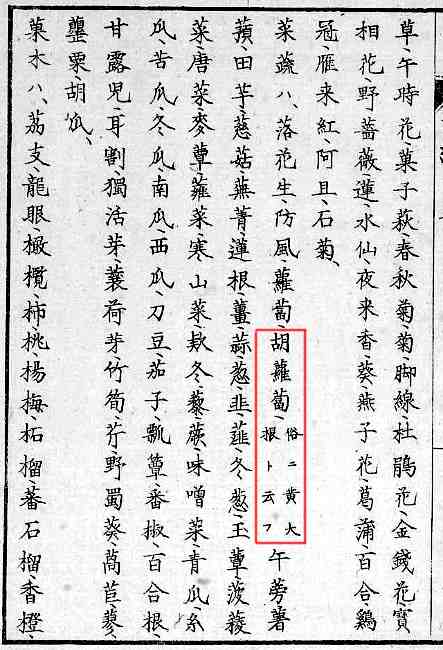 草、午時花、菓子萩、春秋菊、菊脚線、杜鵑花、金錢花、寳
相花、野薔薇、蓮、水仙、夜来香、葵、燕子花、菖蒲、百合、鷄
冠、雁来紅、阿且、石菊、
菜蔬ハ、落花生、防風、蘿蔔、胡蘿蔔俗ニ黄大根ト云フ午蒡、薯
蕷、田芋、慈菇、蕪菁、蓮根、薑、蒜、葱、韭、薤、冬葱、玉蕈、菠薐
菜、唐菜、麥蕈、蕹菜、寒山菜、欵冬、藜、蕨、味噌菜、青瓜、糸
瓜、苦瓜、冬瓜、南瓜、西瓜、刀豆、茄子、瓢簟、番椒、百合根、
甘露児、耳割、獨活芽、蘘荷芽、竹筍、芹、野蜀葵、萵苣、蓼、
罌粟、胡瓜、
菓木ハ、荔支、龍眼、橄欖、柿、桃、楊梅、柘榴、蕃石榴、香橙、